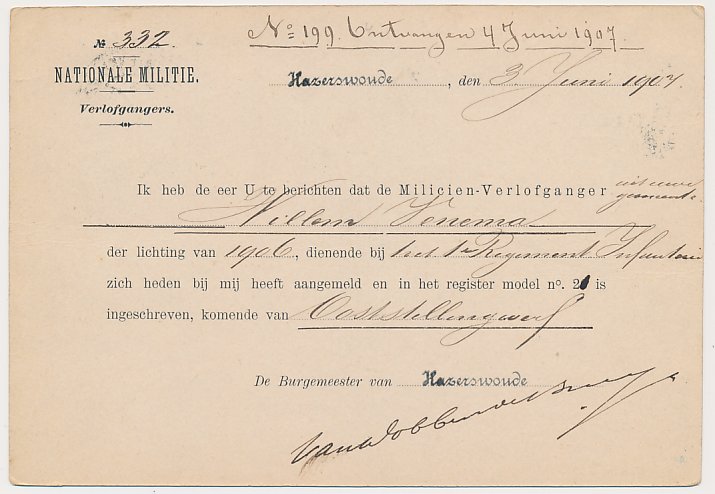 No 199. Ontvangen 4 Juni 1907.
No 332.
NATIONALE MILITIE.
Verlofgangers.
Hazerswoude, den 3 Juni 1907.
Ik heb de eer U te berichten dat de Milicien-Verlofganger uit uwe
gemeente
Willem Venema
der lichting van 1906, dienende bij het 1e Regiment Infanterie
zich heden bij mij heeft aangemeld en in het register model no. 21 is
ingeschreven, komende van Ooststellingwerf
De Burgemeester van Hazerswoude